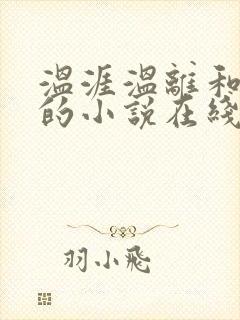 温涯温離和
的小說在綫
羽小飛